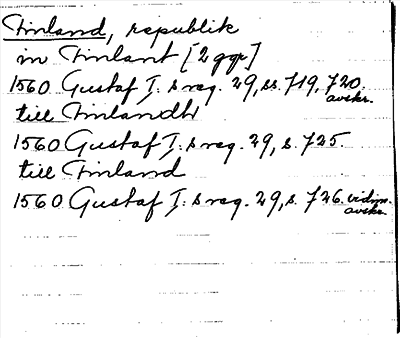 Finland, republik
in Finlant [2 ggr]
1560 Gustaf I: s reg. 29, ss. 719, 720.
avskr.
till Finlandh
1560 Gustaf I: s reg. 29, s. 725.
till Finland
1560 Gustaf I: s reg. 29, s. 726. vidim.
avskr.